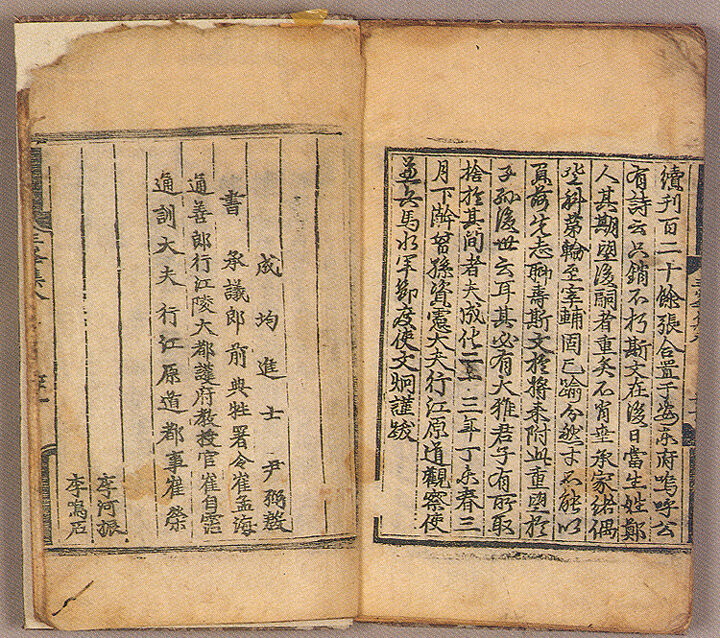 續刊百二十餘張合置于安東府嗚呼公
有詩云只銷不朽斯文在後日當生姓鄭
人其期望後嗣者重矣不肖承家紹偶
科第輪至宰輔固已踰分然才不能以
先志聊壽斯文於將來附此重望於
子孫後世云耳其必有大雅君子有所取
捨於其間者夫成化二十三年丁未春三
月下澣曾孫資憲大夫行江原道觀察使
兼兵馬水軍節度使文炯謹跋
成均進士 尹弼
書 承議郎前典牲署令崔孟海
通善郎行江陵大都護府教授官崔自霑
通訓大夫行江原道都事崔榮
李河振
李石